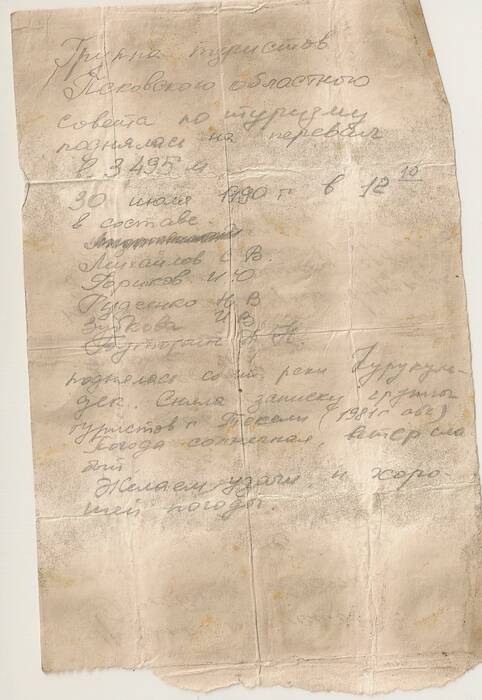 Группа туристов
Псковского областного
совета по туризму
поднялась на перевал
3495 м
30 июля 1990 г в 12 10
в составе.
Михайлов С В.
Горшков И Ю
Руденко Н В
Зубкова И В
поднялась со ст. реки
дек. Сняла записку группы
туристов г Текели (1981г авг)
Погода солнечная, ветер сла
бый
Желаем удачи и хоро-
шей погоды.